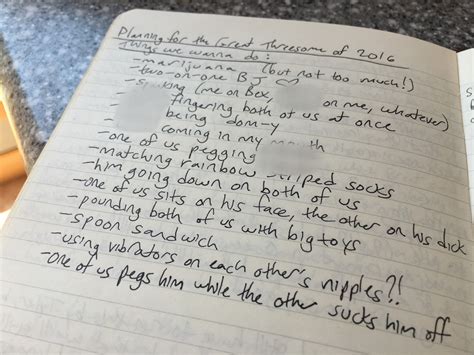 Planning for the Great Threesome of 2016
Things we wanna do:
-marijuana (but not too much!)
-two-on-one BJ ♡
(me on Bex, on me, whatever)
fingering both of us at once
being dom-y
coming in my
-one of us pegging
-matching rainbow striped socks
-him going down on both of us
-one of us sits on his face, the other on his dick
-pounding both of us with big toys
-spoon sandwich
-using vibrators on each other's nipples?!
-one of us pegs him while the other sucks him off